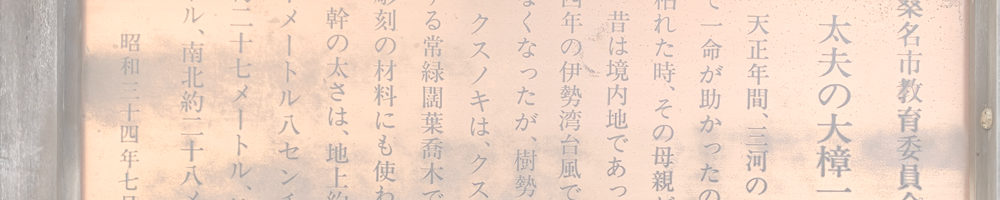 桑名市教育委員会
太夫の大樟一
天正年間、三河の
て一命が助かったの
枯れた時、その母親が
昔は境内地であっ
四年の伊勢湾台風で
なくなったが、樹勢
クスノキは、クス
する常緑闊葉喬木で
彫刻の材料にも使わ
幹の太さは、地上約
メートル八センチ
二十七メートル、
ル、南北約二十八メ
昭和三十四年七月